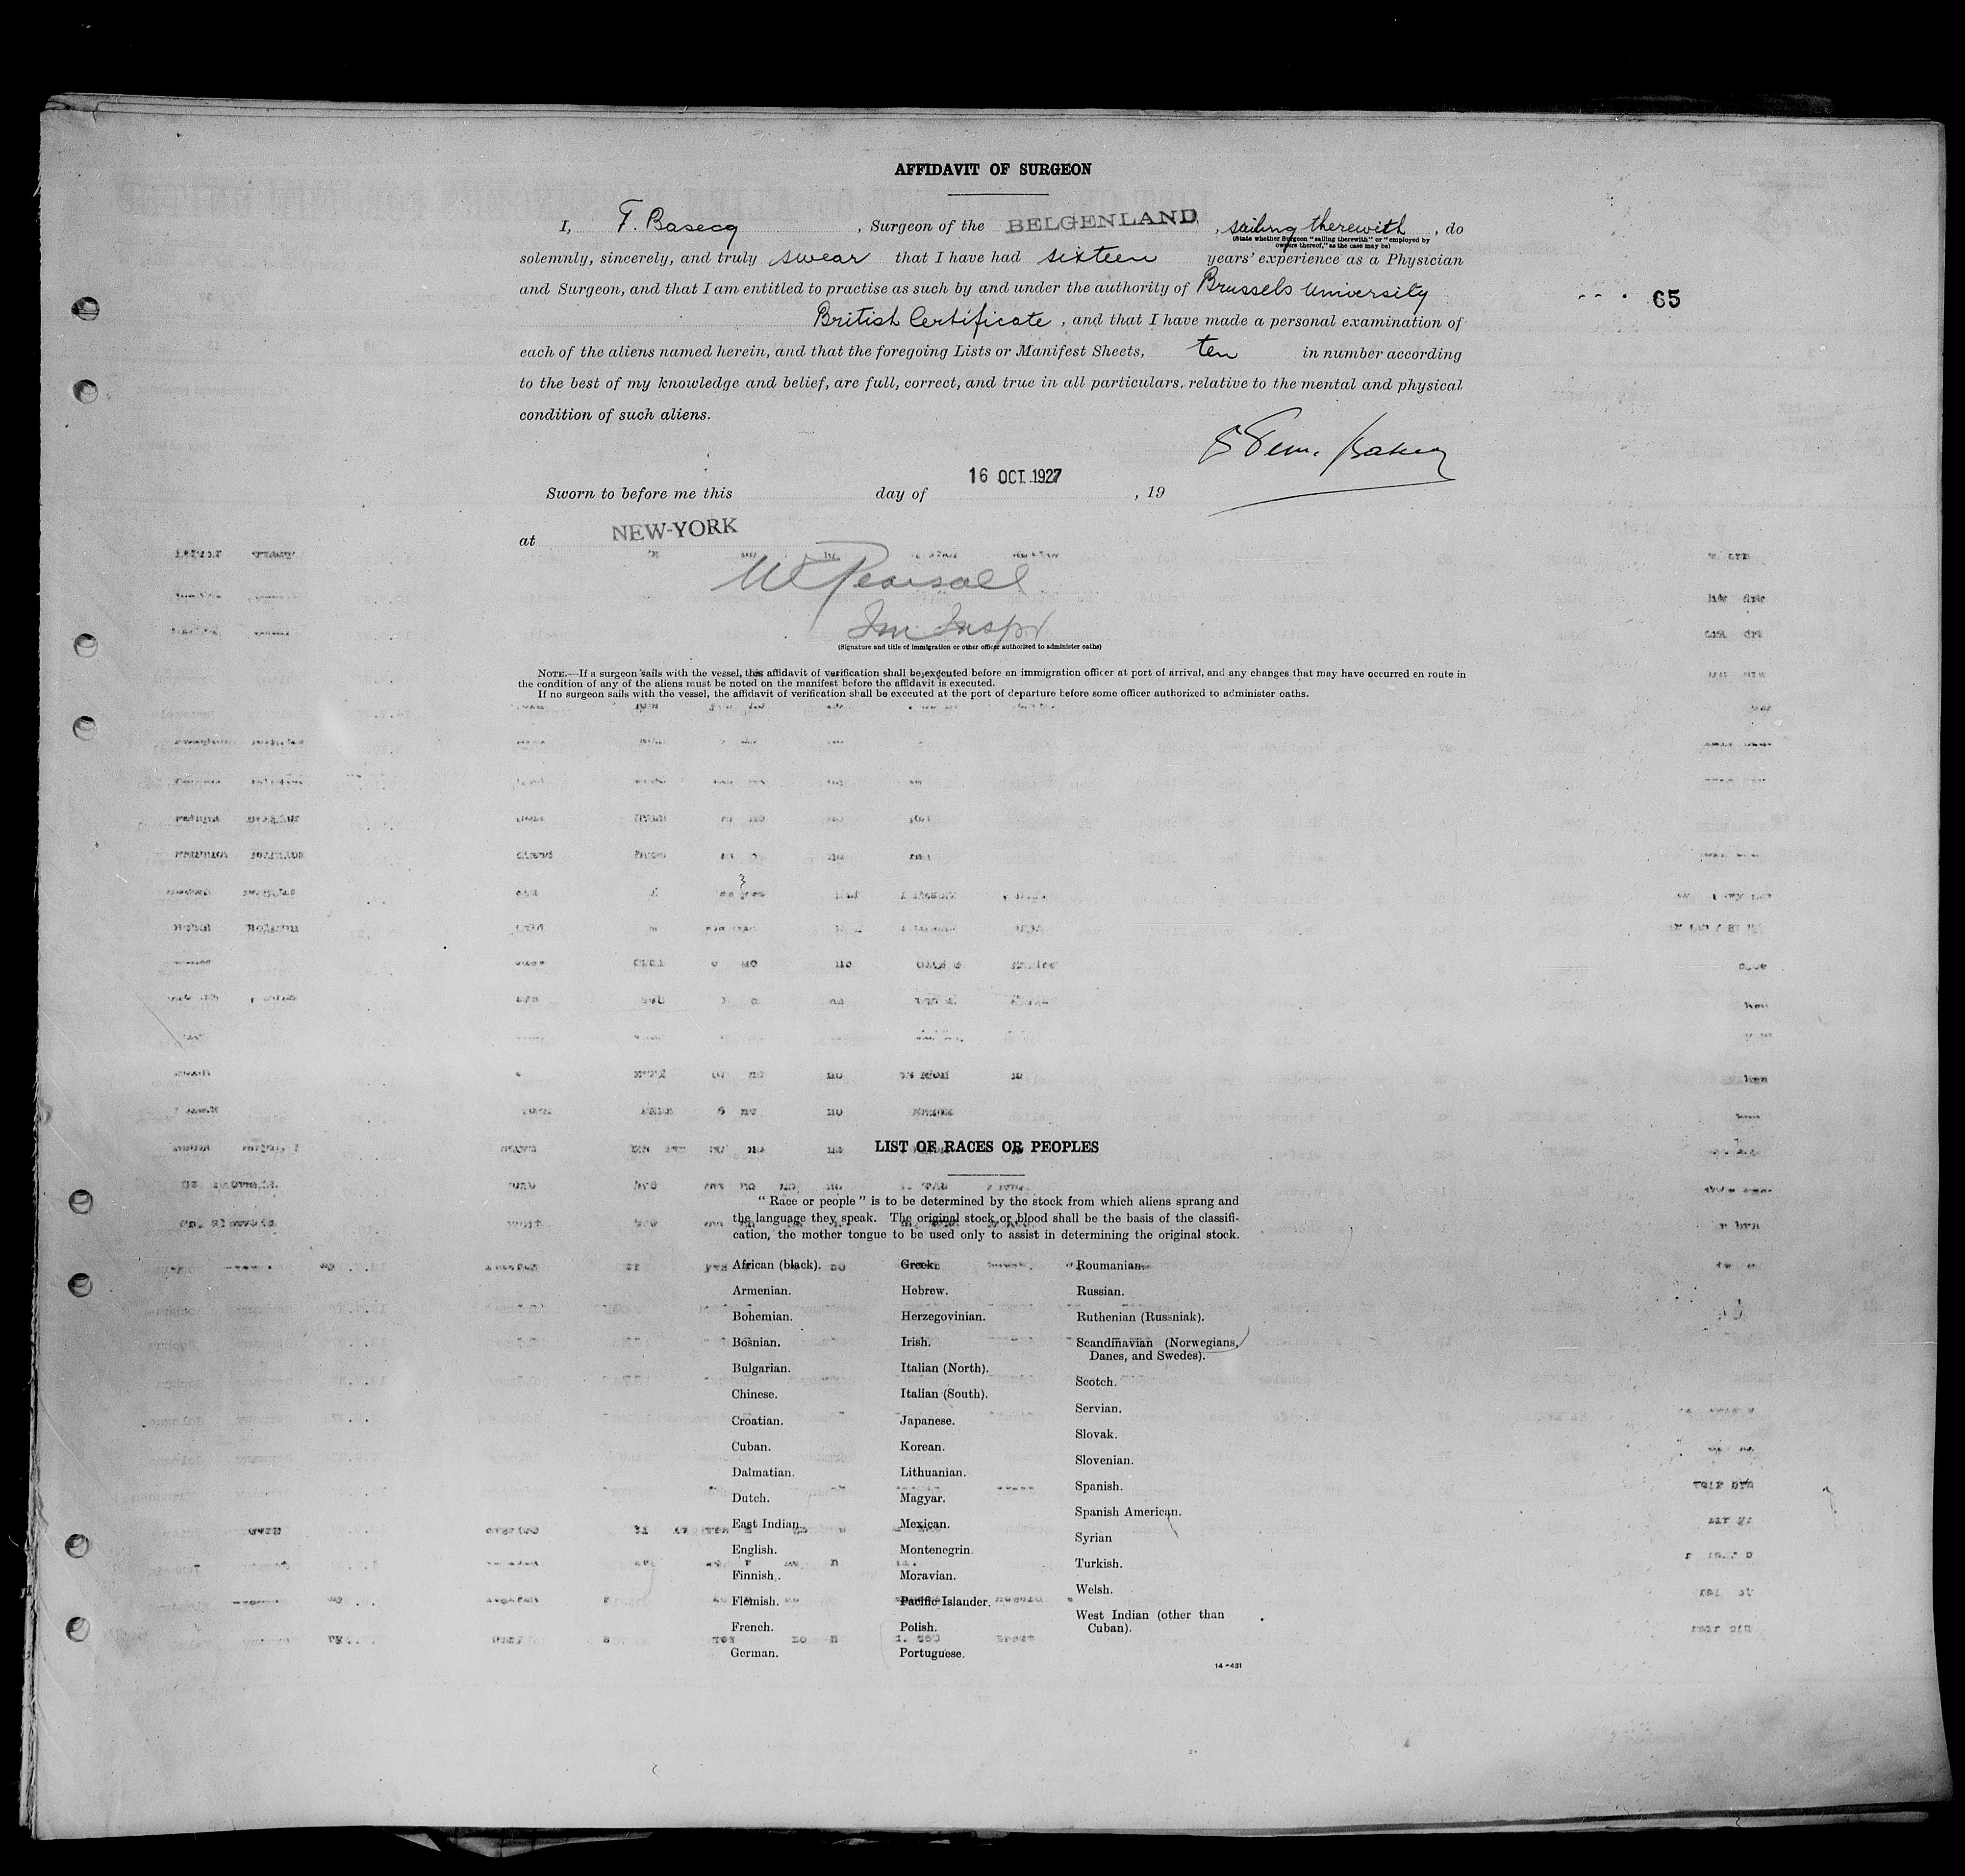 AFFIDAVIT OF SURGEON
I, F. Basecq, Surgeon of the BELGENLAND, sailing therewith, do
(State whether Surgeon "sailing therewith" or "employed by
owners thereof," as the case may be)
solemnly, sincerely, and truly swear that I have had sixteen years' experience as a Physician
and Surgeon, and that I am entitled to practise as such by and under the authority of Brussels University
65
British Certificate, and that I have made a personal examination of
each of the aliens named herein, and that the foregoing Lists or Manifest Sheets, ten in number according
to the best of my knowledge and belief, are full, correct, and true in all particulars, relative to the mental and physical
condition of such aliens.
16 OCT. 1927
Sworn to before me this day of , 19
at NEW-YORK
Pearsall
Im Inspr
(Signature and title of immigration or other officer authorized to administer oaths)
NOTE.—If a surgeon sails with the vessel, this affidavit of verification shall be executed before an immigration officer at port of arrival, and any changes that may have occurred en route in
the condition of any of the aliens must be noted on the manifest before the affidavit is executed.
If no surgeon sails with the vessel, the affidavit of verification shall be executed at the port of departure before some officer authorized to administer oaths.
LIST OF RACES OR PEOPLES
"Race or people" is to be determined by the stock from which aliens sprang and
the language they speak. The original stock or blood shall be the basis of the classifi-
cation, the mother tongue to be used only to assist in determining the original stock.
African (black).
Armenian.
Bohemian.
Bosnian.
Bulgarian.
Chinese.
Croatian.
Cuban.
Dalmatian.
Dutch.
East Indian.
English.
Finnish.
Flemish.
French.
German.
Greek.
Hebrew.
Herzegovinian.
Irish.
Italian (North).
Italian (South).
Japanese.
Korean.
Lithuanian.
Magyar.
Mexican.
Montenegrin.
Moravian.
Pacific Islander.
Polish.
Portuguese.
Roumanian.
Russian.
Ruthenian (Russniak).
Scandinavian (Norwegians,
Danes, and Swedes).
Scotch.
Servian.
Slovak.
Slovenian.
Spanish.
Spanish American.
Syrian
Turkish.
Welsh.
West Indian (other than
Cuban).
14-431